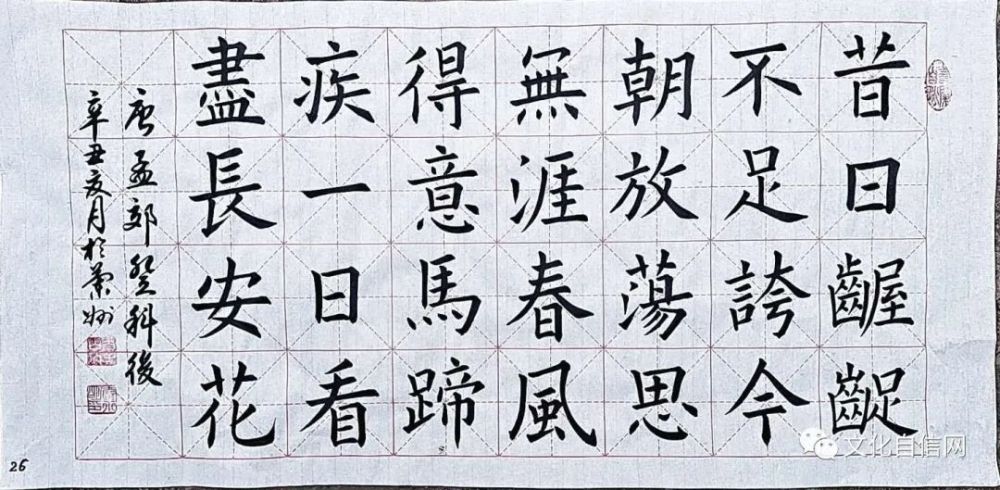 昔日齷齪
不足誇今
朝放蕩思
無涯春風
得意馬蹄
疾一日看
盡長安花
唐孟郊登科後
辛丑亥月於蘭州
文化自信网
26